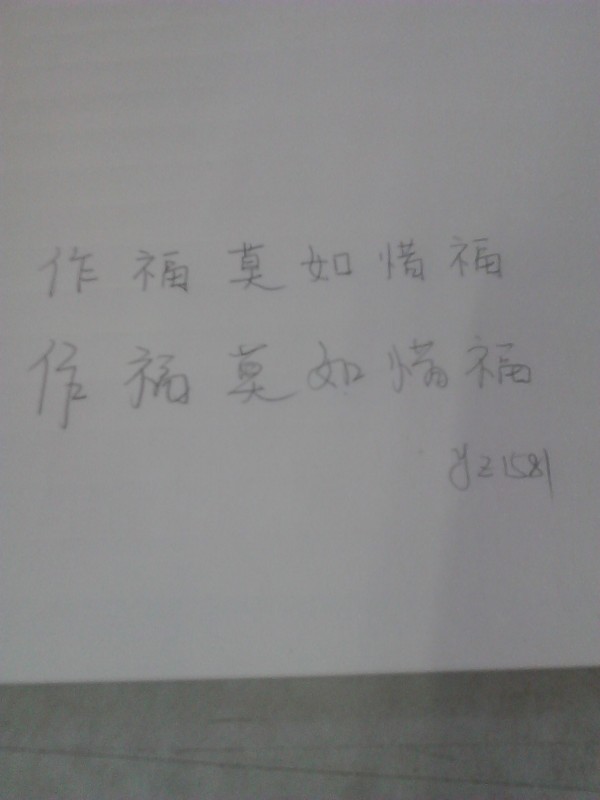 作福莫如惜福
作福莫如惜福
yz1581